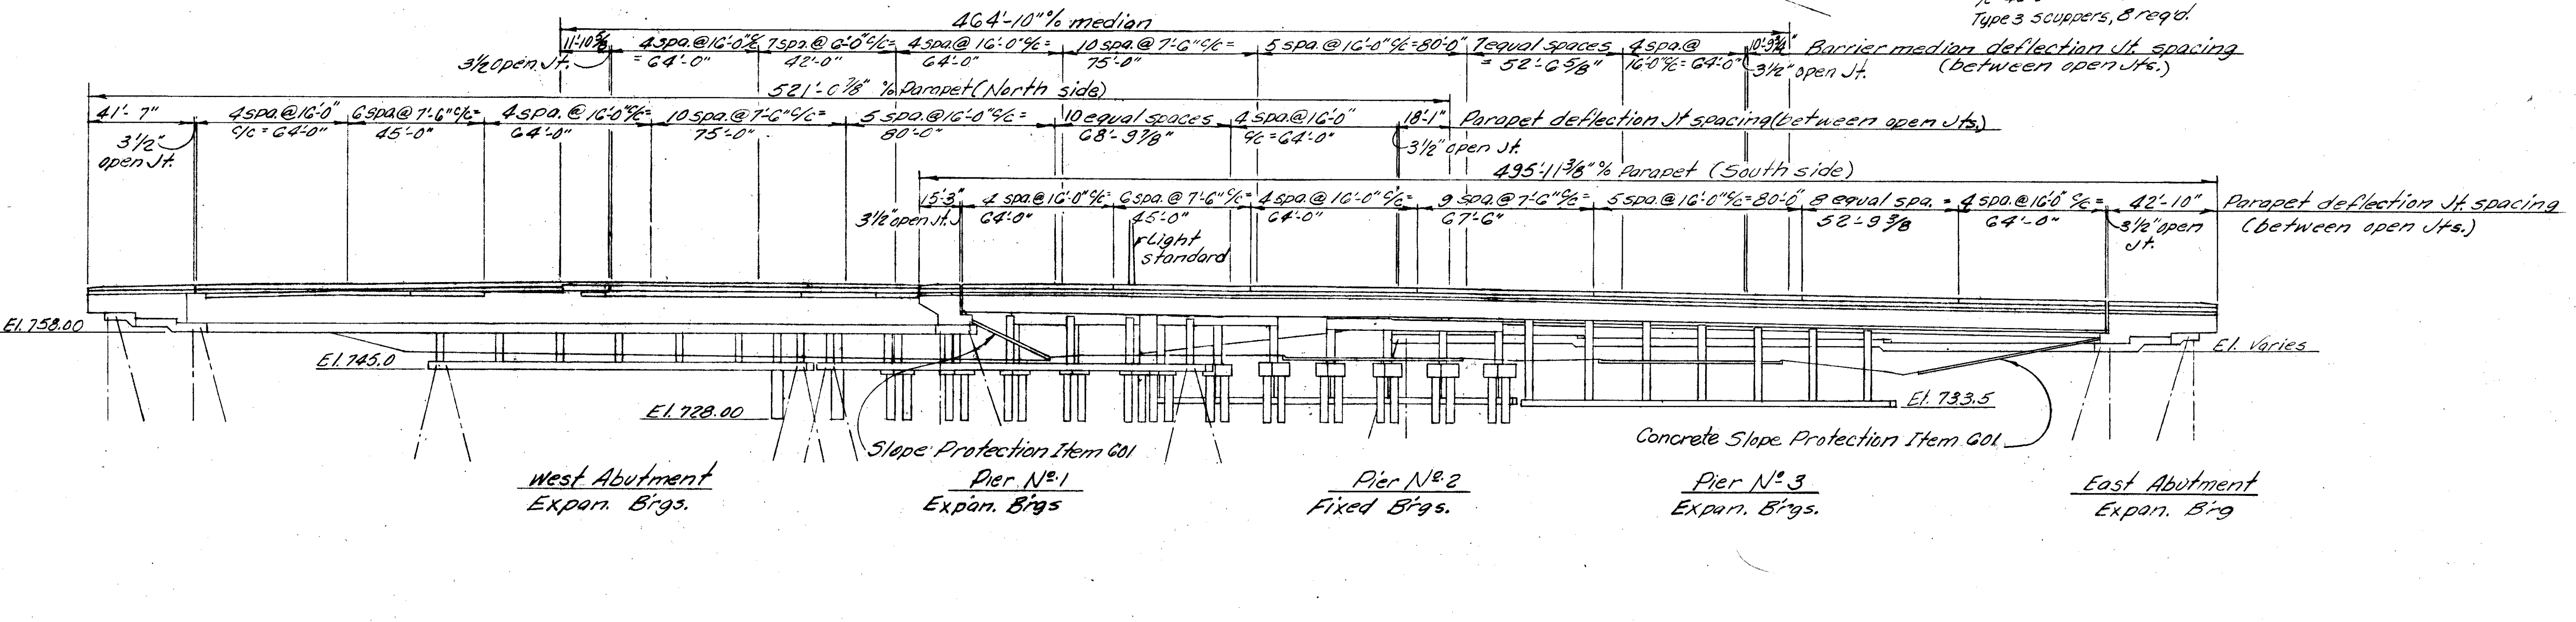 Type 3 scuppers, 8 req'd.
464'-10" % median
11'-10 5/8"
4 spa.@16'-0" c/c = 64'-0"
7 spa.@ 6'-0" c/c = 42'-0"
4 spa.@ 16'-0" c/c = 64'-0"
10 spa.@ 7'-6" c/c = 75'-0"
5 spa.@ 16'-0" c/c = 80'-0"
7 equal spaces = 52'-6 5/8"
4 spa.@ 16'-0" c/c = 64'-0"
10'-9 3/4"
Barrier median deflection Jt. spacing
(between open Jts.)
3 1/2 open Jt.
3 1/2" open Jt.
521'-0 7/8" % Parapet (North side)
41'-7"
4 spa.@16'-0" c/c = 64'-0"
6 spa.@ 7'-6" c/c = 45'-0"
4 spa.@ 16'-0" c/c = 64'-0"
10 spa.@ 7'-6" c/c = 75'-0"
5 spa.@16'-0" c/c = 80'-0"
10 equal spaces 68'-9 7/8"
4 spa@16'-0" c/c = 64'-0"
18'-1"
Parapet deflection Jt spacing (between open Jts.)
3 1/2"
open Jt.
3 1/2" open Jt.
495'-11 3/8" % Parapet (South side)
15'-3"
4 spa.@ 16'-0" c/c = 64'-0"
6 spa.@ 7'-6" c/c = 45'-0"
4 spa.@ 16'-0" c/c = 64'-0"
9 spa.@ 7'-6" c/c = 67'-6"
5 spa.@16'-0" c/c = 80'-0"
8 equal spa. = 52'-9 3/8
4 spa.@16'-0" c/c = 64'-0"
42'-10"
Parapet deflection Jt. spacing
(between open Jts.)
3 1/2" open Jt.
3 1/2" open
Jt.
Light
standard
El. 758.00
El. 745.0
El. Varies
El. 728.00
El. 733.5
Slope Protection Item 601
Concrete Slope Protection Item 601
West Abutment
Expan. Br'gs.
Pier Nº 1
Expan. Br'gs
Pier Nº 2
Fixed Br'gs.
Pier Nº 3
Expan. Br'gs.
East Abutment
Expan. Br'g